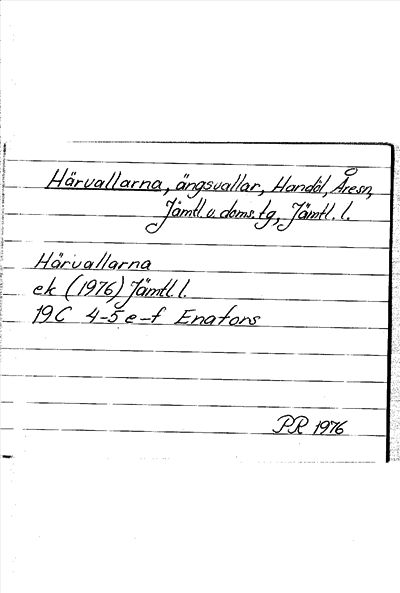 Härvallarna, ängsvallar, Handöl, Åresn,
Jämtl. v. doms. tg, Jämtl. l.
Härvallarna
ek (1976) Jämtl. l.
19C 4-5 e-f Enafors
PR 1976